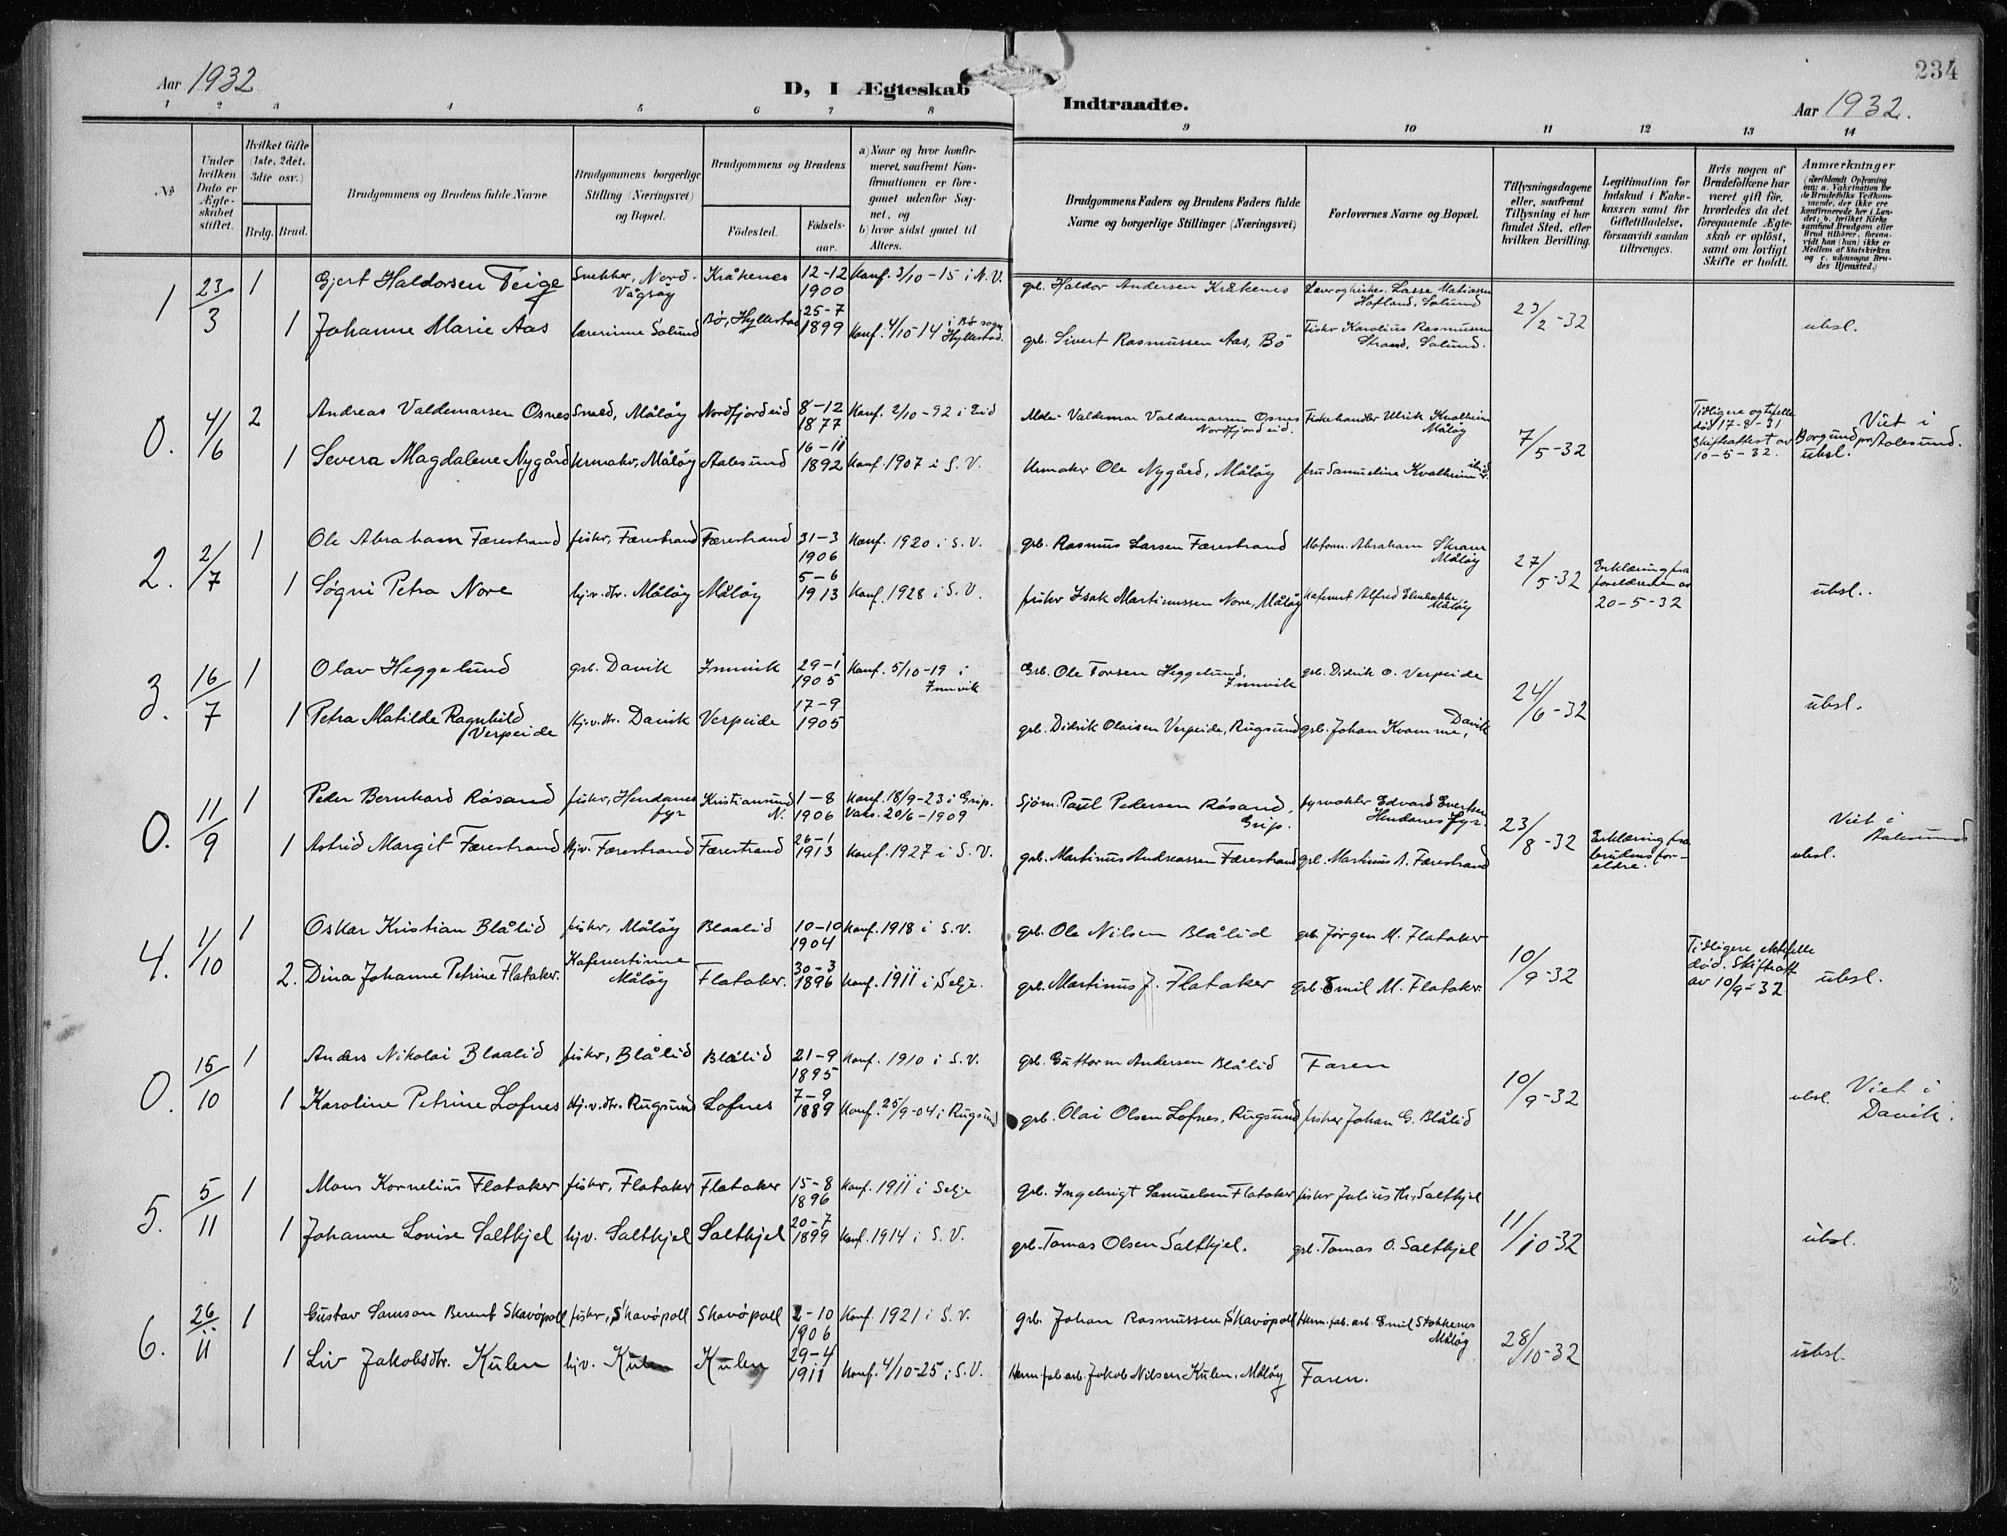 234
Aar 1932
D, I Ægteskab
Indtraadte.
Aar 1932.
1 2 3 4 5 6 7 8 9 10 11 12 13 14
№
Under hvilken Dato er Ægteskabet stiftet.
Hvilket Gifte (1ste, 2det, 3die osv.)
Brdg. Brud.
Brudgommens og Brudens fulde Navne
Brudgommens borgerlige Stilling (Næringsvei) og Bopæl.
Brudgommens og Brudens
Fødested.
Fødsels-aar.
a) Naar og hvor konfir-
meret, saafremt Kon-
firmationen er fore-
gaaet udenfor Sog-
net, og
b) hvor sidst gaaet til
Alters.
Brudgommens Faders og Brudens Faders fulde
Navne og borgerlige Stillinger (Næringsvei)
Forlovernes Navne og Bopæl.
Tillysningsdagene
eller, saafremt
Tillysning ei har
fundet Sted, efter
hvilken Bevilling.
Legitimation for
Indskud i Enke-
kassen samt for
Giftetilladelse,
forsaavidt saadan
tiltrænges.
Hvis nogen af
Brudefolkene har
været gift før,
hvorledes da det
foregaaende Ægte-
skab er opløst,
samt om lovligt
Skifte er holdt.
Anmærkninger
1 23/3 1 Gjert Haldorsen Teige Snekker, Nord-Vågsøy Kråkenes 12-12 1900 Konf. 3/10-15 i N.V. gbr. Haldor Andersen Kråkenes Lasse Matiassen Hafland, Solund 23/2-32 ubsl.
1 Johanne Marie Aas lærerinne Solund Bø, Hyllestad 25-7 1899 Konf. 4/10-14 i Bø sogn Hyllestad. gbr. Sivert Rasmussen Aas, Bø Fisker Karolius Rasmussen Strand, Solund.
0. 4/6 2 Andreas Valdemarsen Osnes Smed, Måløy Nordfjordeid 8-12 1877 Konf. 2/10-92 i Eid Valdemar Valdemarsen Osnes Nordfjordeid. Fiskehandler Ulrik Kvalheim Måløy 7/5-32 Tidligere egtefelle død 17-8-31 Skifteattest av 10-5-32. Borgund pr. Aalesund. ubsl. Viet i
1 Severa Magdalene Nygård Urmaker, Måløy Aalesund 16-11 1892 Konf. 1907 i S.V. Urmaker Ole Nygård, Måløy fru Samueline Kvalheim ibid.
2. 2/7 1 Ole Abraham Færestrand fisker, Færestrand Færestrand 31-3 1906 Konf. 1920 i S.V. gbr. Rasmus Larsen Færestrand Abraham Skram Måløy 27/5-32 Erklæring fra foreldrene av 20-5-32 ubsl.
1 Søgni Petra Nore hj.v.dtr. Måløy Måløy 5-6 1913 Konf. 1928 i S.V. fisker Isak Martinussen Nore, Måløy Alfred Måløy
3. 16/7 1 Olav Heggelund gbr. Davik Innvik 29-1 1905 Konf. 5/10-19 i Innvik Gbr. Ole Torsen Heggelund, Innvik gbr. Didrik O. Verpeide 24/6-32 ubsl.
1 Petra Matilde Ragnhild Verpeide Hj.v.dtr. Davik Verpeide 17-9 1905 gbr. Didrik Olaisen Verpeide, Rugsund gbr. Johan Kvamme, Davik
0. 11/9 1 Peder Bernhard Røsand fisker, Hendanes fyr Kristiansund N. 1-8 1906 Konf. 18/9-23 i Grip. Vaks. 20/6-1909 Sjøm. Paul Pedersen Røsand, Grip. fyrvokter Edvard Evertsen Hendanes fyr. 23/8-32 Erklæring fra brudens foreldre. ubsl. Viet i Aalesund
1 Astrid Margit Færestrand hjv. Færestrand Færestrand 26-1 1913 Konf. 1927 i S.V. gbr. Martinus Andreassen Færestrand gbr. Martinus A. Færestrand
4. 1/10 1 Oskar Kristian Blålid fisker, Måløy Blaalid 10-10 1904 Konf. 1918 i S.V. gbr. Ole Nilsen Blålid gbr. Jørgen M. Flatøker 10/9-32 Tidligere ektefelle død. Skifteatt av 10/9-32 ubsl.
2. Dina Johanne Petrine Flataker. Kafevertinne Måløy Flataker. 30-3 1896 Konf. 1911 i Selje. gbr. Martinus J. Flataker gbr. Emil M. Flataker.
0. 15/10 1 Anders Nikolai Blaalid fisker, Blålid Blålid 21-9 1895 Konf. 1910 i S.V. gbr. Guttorm Andersen Blålid Faren 10/9-32 ubsl. Viet i Davik.
1 Karoline Petrine Lofnes Hj.v.dtr. Rugsund Lofnes 7-9 1889 Konf. 25/9-04 i Rugsund gbr. Olai Olsen Lofnes, Rugsund fisker Johan G. Blålid
5. 5/11 1 Mons Kornelius Flataker fisker, Flataker Flataker 15-8 1896 Konf. 1911 i Selje gbr. Ingebrigt Samuelsen Flataker fisker Julius Th. Saltkjel 11/10-32 ubsl.
1 Johanne Lovise Saltkjel hjv. Saltkjel Saltkjel 20-7 1899 Konf. 1914 i S.V. gbr. Tomas Olsen Saltkjel. gbr. Tomas O. Saltkjel
6. 26/11 1 Gustav Samson Berent Skavøpoll fisker, Skavøpoll Skavøpoll 2-10 1906 Konf. 1921 i S.V. gbr. Johan Rasmussen Skavøpoll Herm.fab.arb. Emil Stokkenes Måløy 28/10-32 ubsl.
1 Liv Jakobsdtr. Kulen hjv. Kulen Kulen 29-4 1911 Konf. 4/10-25 i S.V. Herm.fab.arb. Jakob Nilsen Kulen, Måløy Faren.